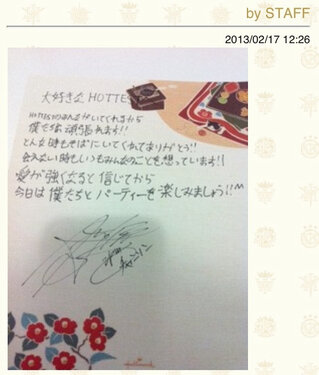 by STAFF
2013/02/17 12:26
大好きな HOTTEST
HOTTESTのみんながいてくれるから
僕たちは頑張れます!!
どんな時もそばにいてくれてありがとう!!
会えない時もいつもみんなのことを想っています!!
愛が強くなると信じてから
今日は僕たちとパーティーを楽しみましょう!!^^
チャンソン
Hallmark